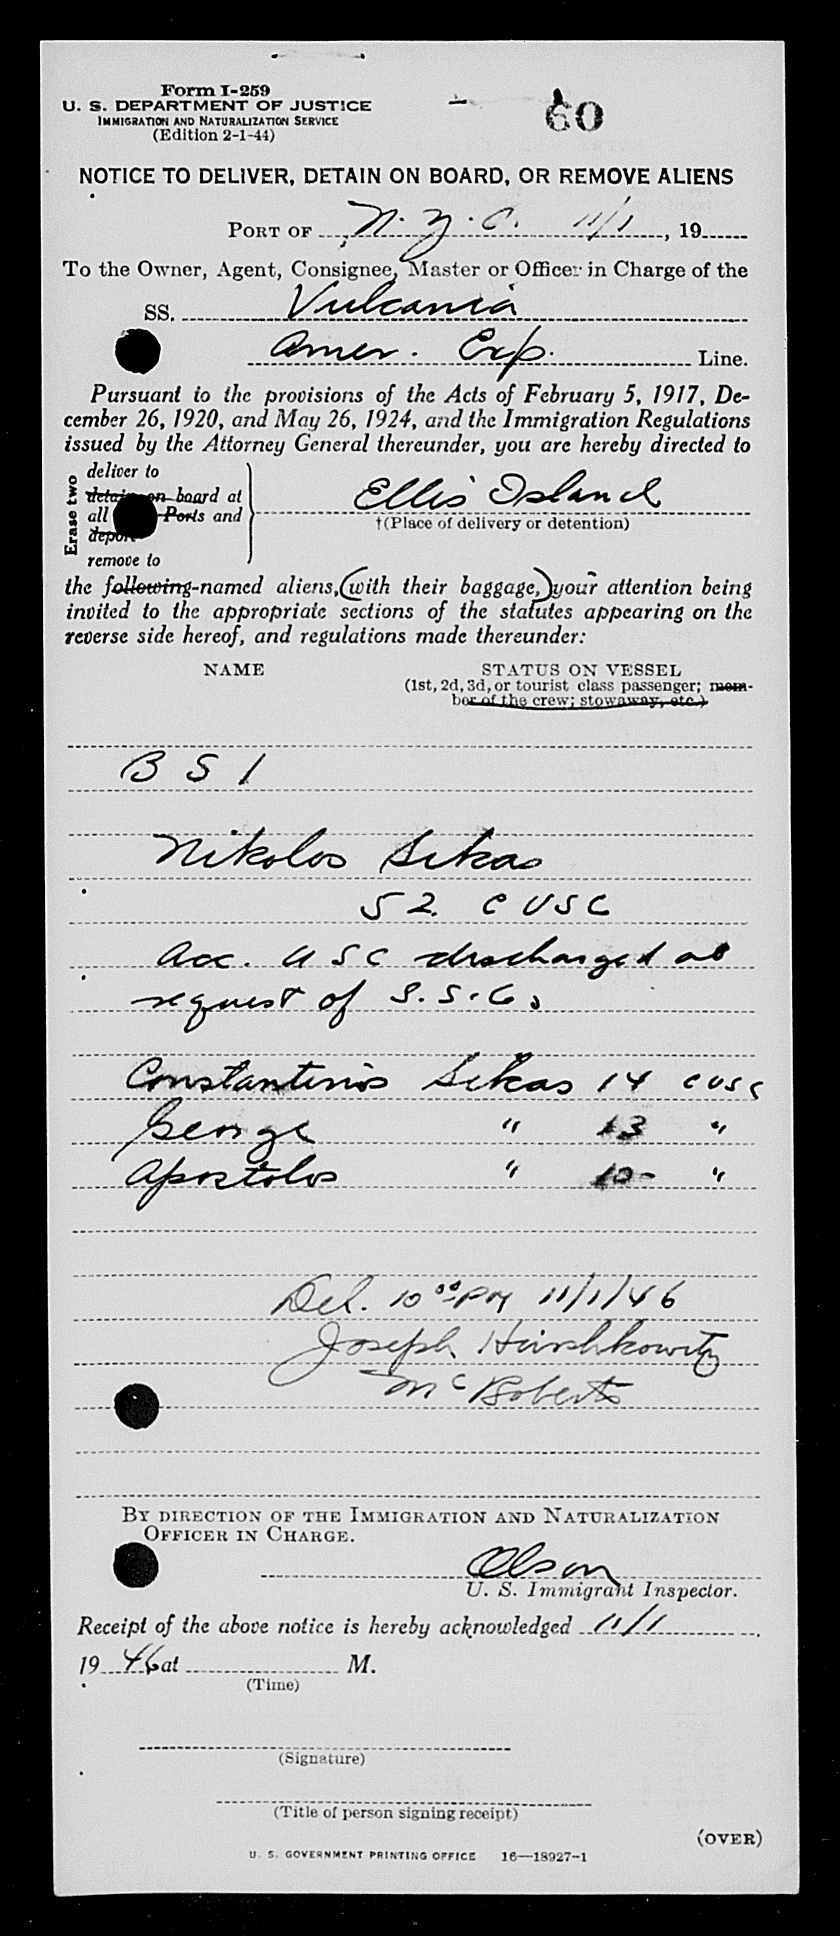 Form I-259
U. S. DEPARTMENT OF JUSTICE
IMMIGRATION AND NATURALIZATION SERVICE
(Edition 2-1-44)
60
NOTICE TO DELIVER, DETAIN ON BOARD, OR REMOVE ALIENS
PORT OF N.Y.C. 11/1, 19
To the Owner, Agent, Consignee, Master or Officer in Charge of the
SS. Vulcania
Amer. Exp. Line.
Pursuant to the provisions of the Acts of February 5, 1917, De-
cember 26, 1920, and May 26, 1924, and the Immigration Regulations
issued by the Attorney General thereunder, you are hereby directed to
Erase two
deliver to
detain on board at
all Ports and
deport
remove to
Ellis Island
†(Place of delivery or detention)
the following-named aliens, (with their baggage,) your attention being
invited to the appropriate sections of the statutes appearing on the
reverse side hereof, and regulations made thereunder:
NAME STATUS ON VESSEL
(1st, 2d, 3d, or tourist class passenger; mem-
ber of the crew; stowaway, etc.)
B S I
Nikolos Sekas
52 C USC
Acc. USC discharged at
request of S.S.Co
Constantinos Sekas 14 C USC
George " 13 "
Apostolos " 10 "
Del. 10 00 PM 11/1/46
Joseph Hirshkowitz
McRoberts
BY DIRECTION OF THE IMMIGRATION AND NATURALIZATION
OFFICER IN CHARGE.
Olson
U. S. Immigrant Inspector.
Receipt of the above notice is hereby acknowledged 11/1
19 46 at M.
(Time)
(Signature)
(Title of person signing receipt)
(OVER)
U. S. GOVERNMENT PRINTING OFFICE 16—18927-1